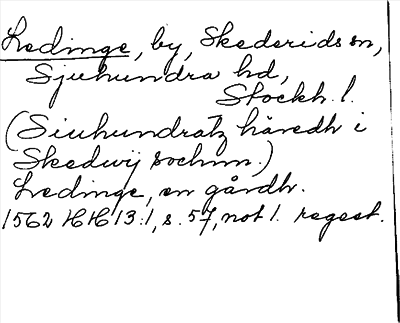 Ledinge, by, Skederids sn,
Sjuhundra hd,
Stockh. l.
(Siuhundratz häredh i
Skedwij sochnn.)
Ledinge, en gårdh.
1562 HH 13:1, s. 57, not 1. regest.